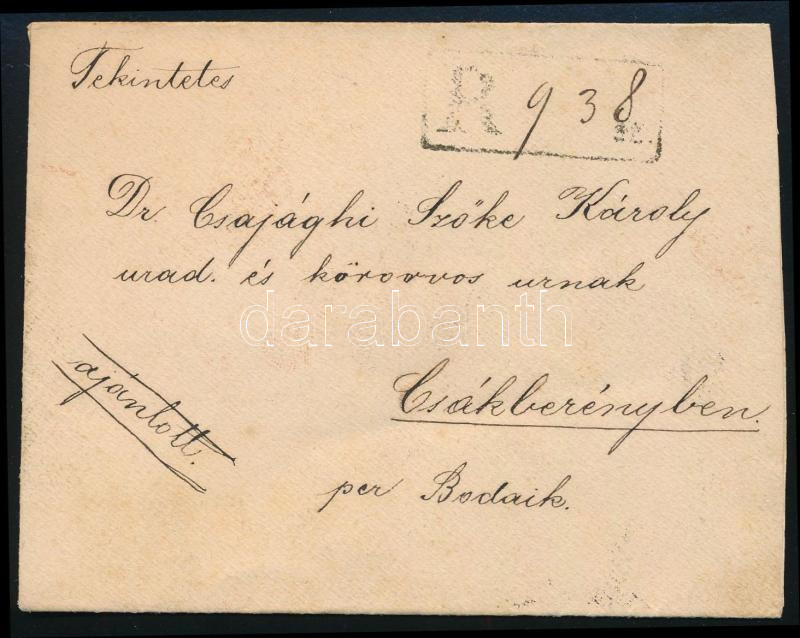 Tekintetes
R 938 sz.
Dr. Csajághi Szőke Károly
urad. és körorvos urnak
darabanth
ajánlott.
Csákberényben.
per Bodaik.